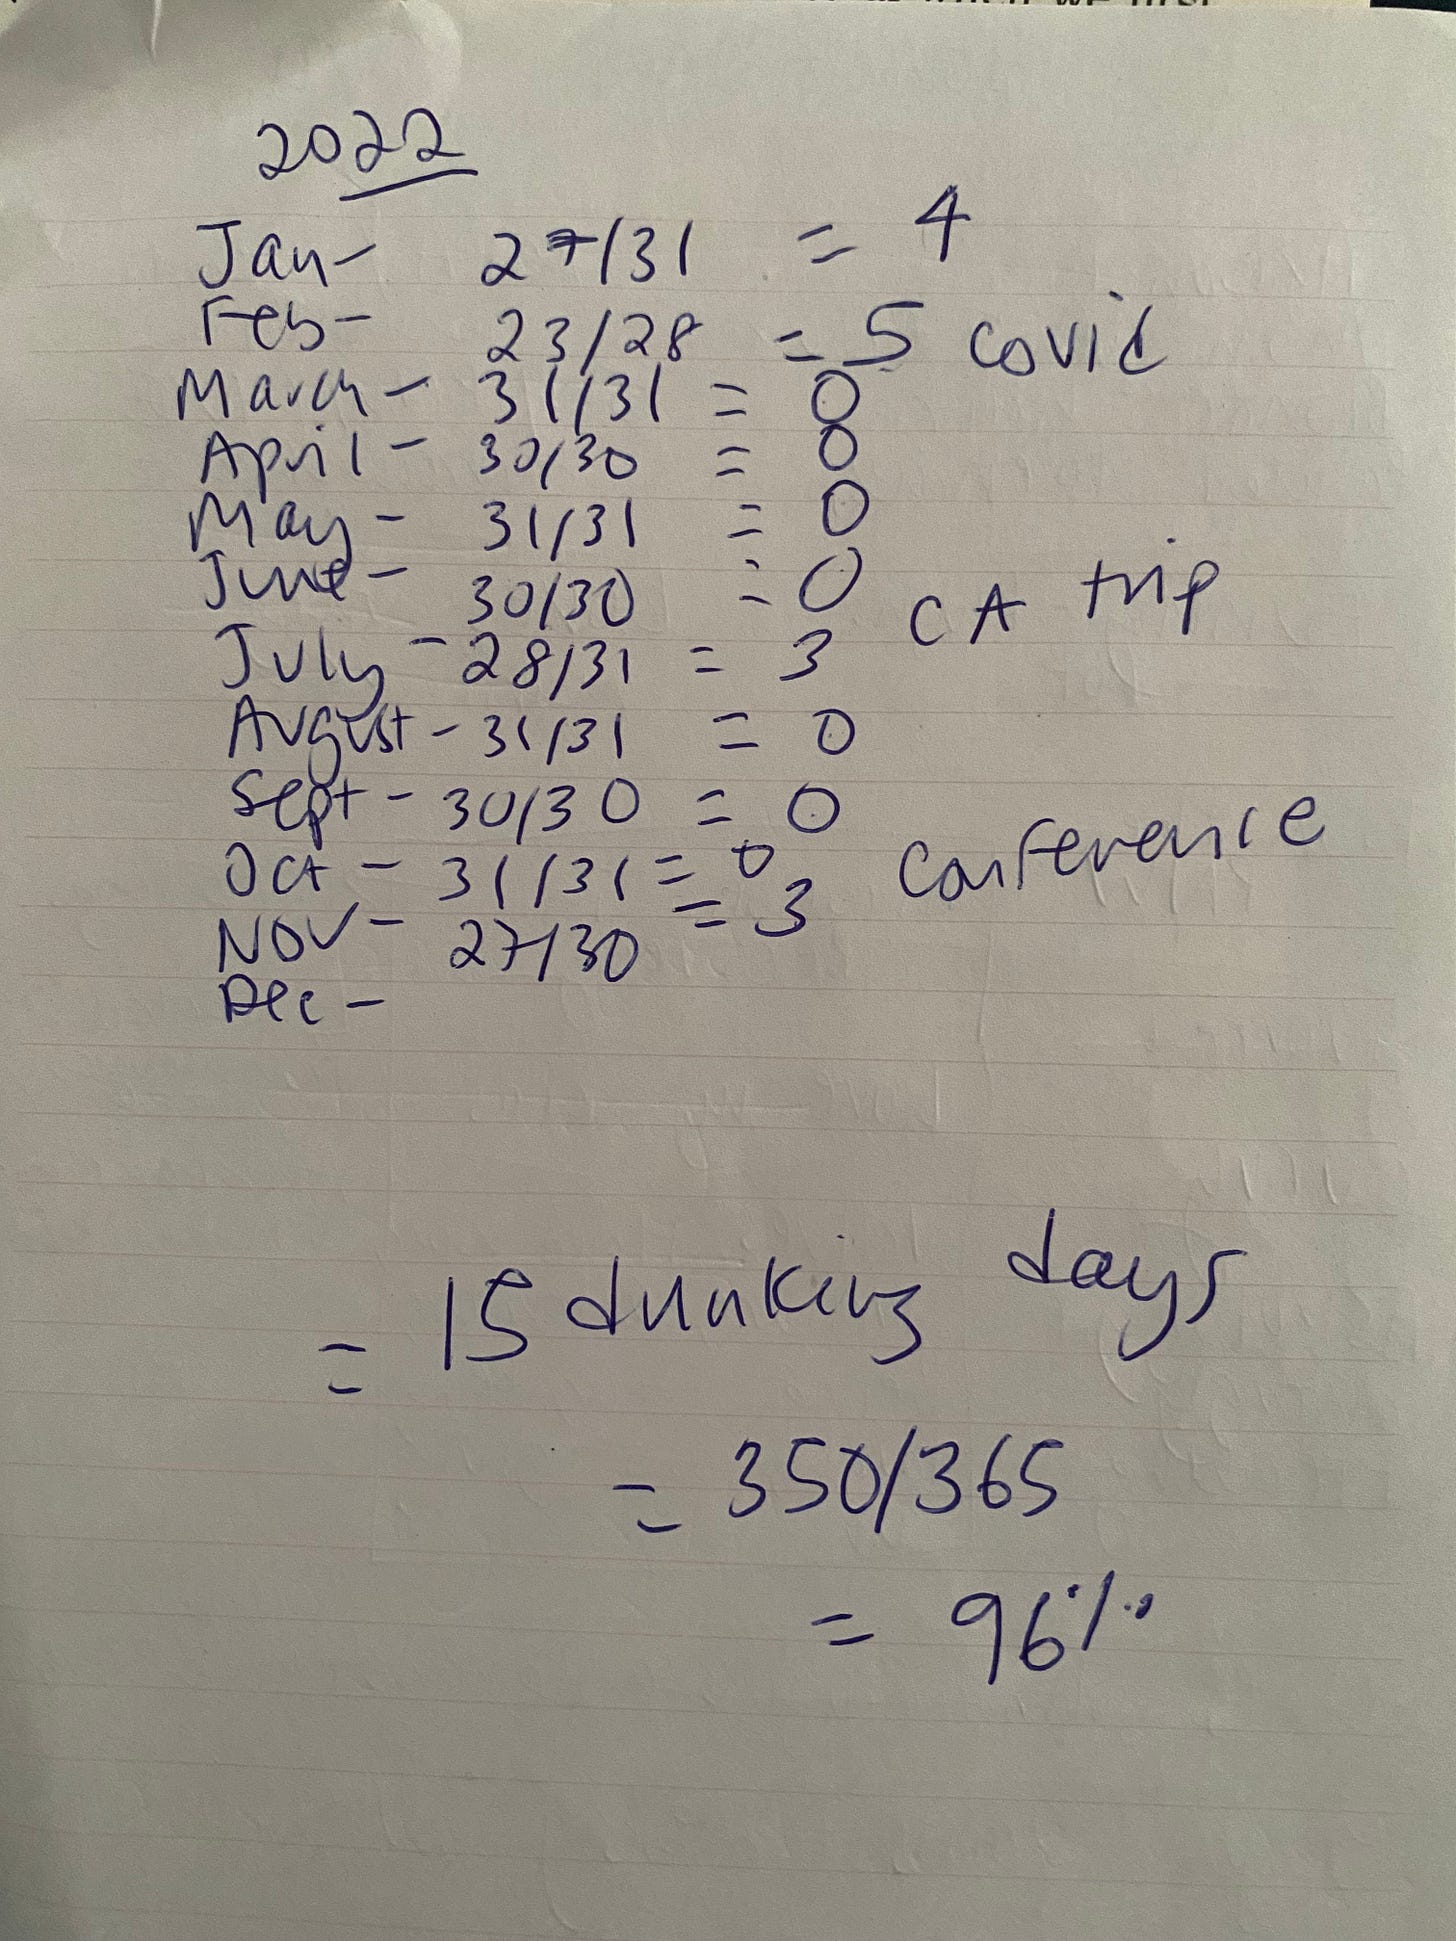 2022
Jan- 27/31 = 4
Feb- 23/28 = 5 covid
March- 31/31 = 0
April- 30/30 = 0
May- 31/31 = 0
June- 30/30 = 0 CA trip
July- 28/31 = 3
August- 31/31 = 0
Sept- 30/30 = 0
Oct- 31/31 = 0 Conference
Nov- 27/30 = 3
Dec-
= 15 drinking days
= 350/365
= 96%